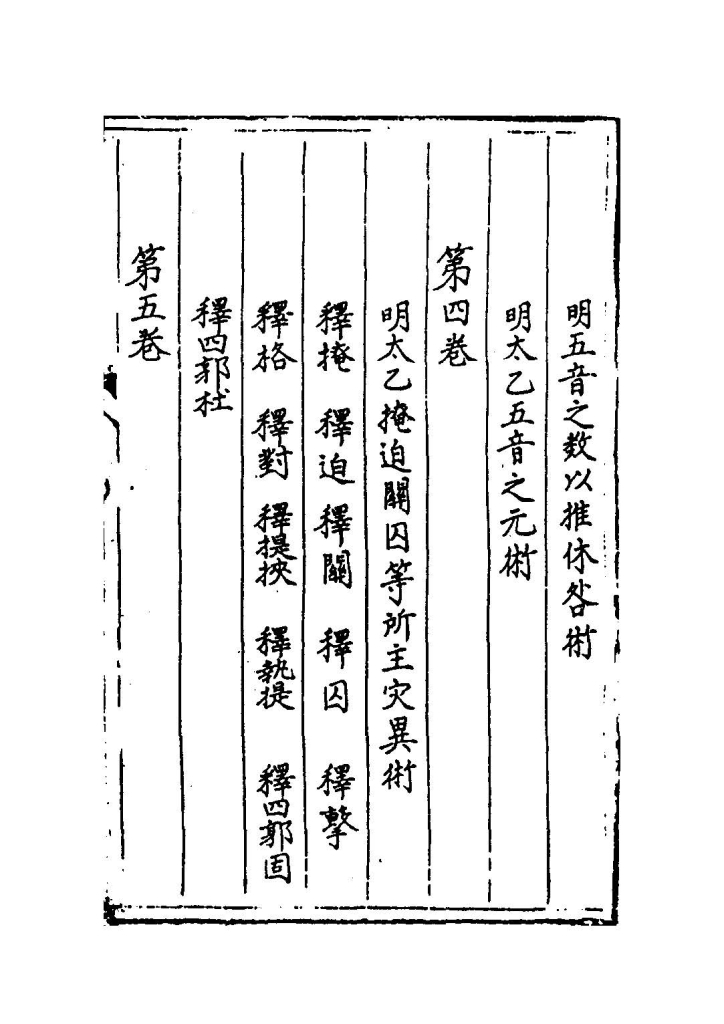 明五音之数以推休咎術
明太乙五音之元術
第四卷
明太乙掩迫關囚等所主灾異術
釋掩 釋迫 釋關 釋囚 釋擊
釋格 釋對 釋提挾 釋執提 釋四郭固
釋四郭杜
第五卷